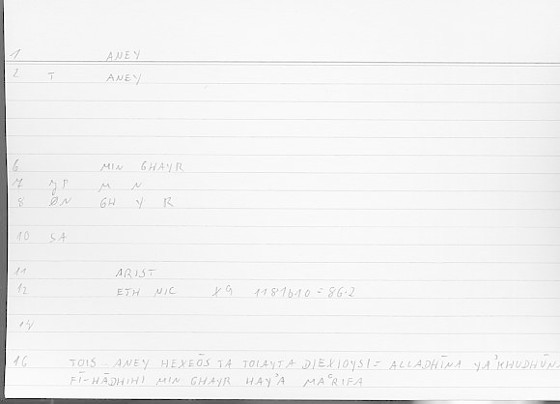 1 ANEY
2 T ANEY
6 MIN GHAYR
7 M N
8 ØN GH Y R
10 SA
11 ARIST
12 ETH NIC X9 1181b10 = 86.2
14
16 TOIS ANEY HEXEŌS TA TOIAYTA DIEXIOYSI = ALLADHĪNA YAʾKHUDHŪNA
FĪ-HĀDHIHI MIN GHAYR HAYʾA MAʿRIFA